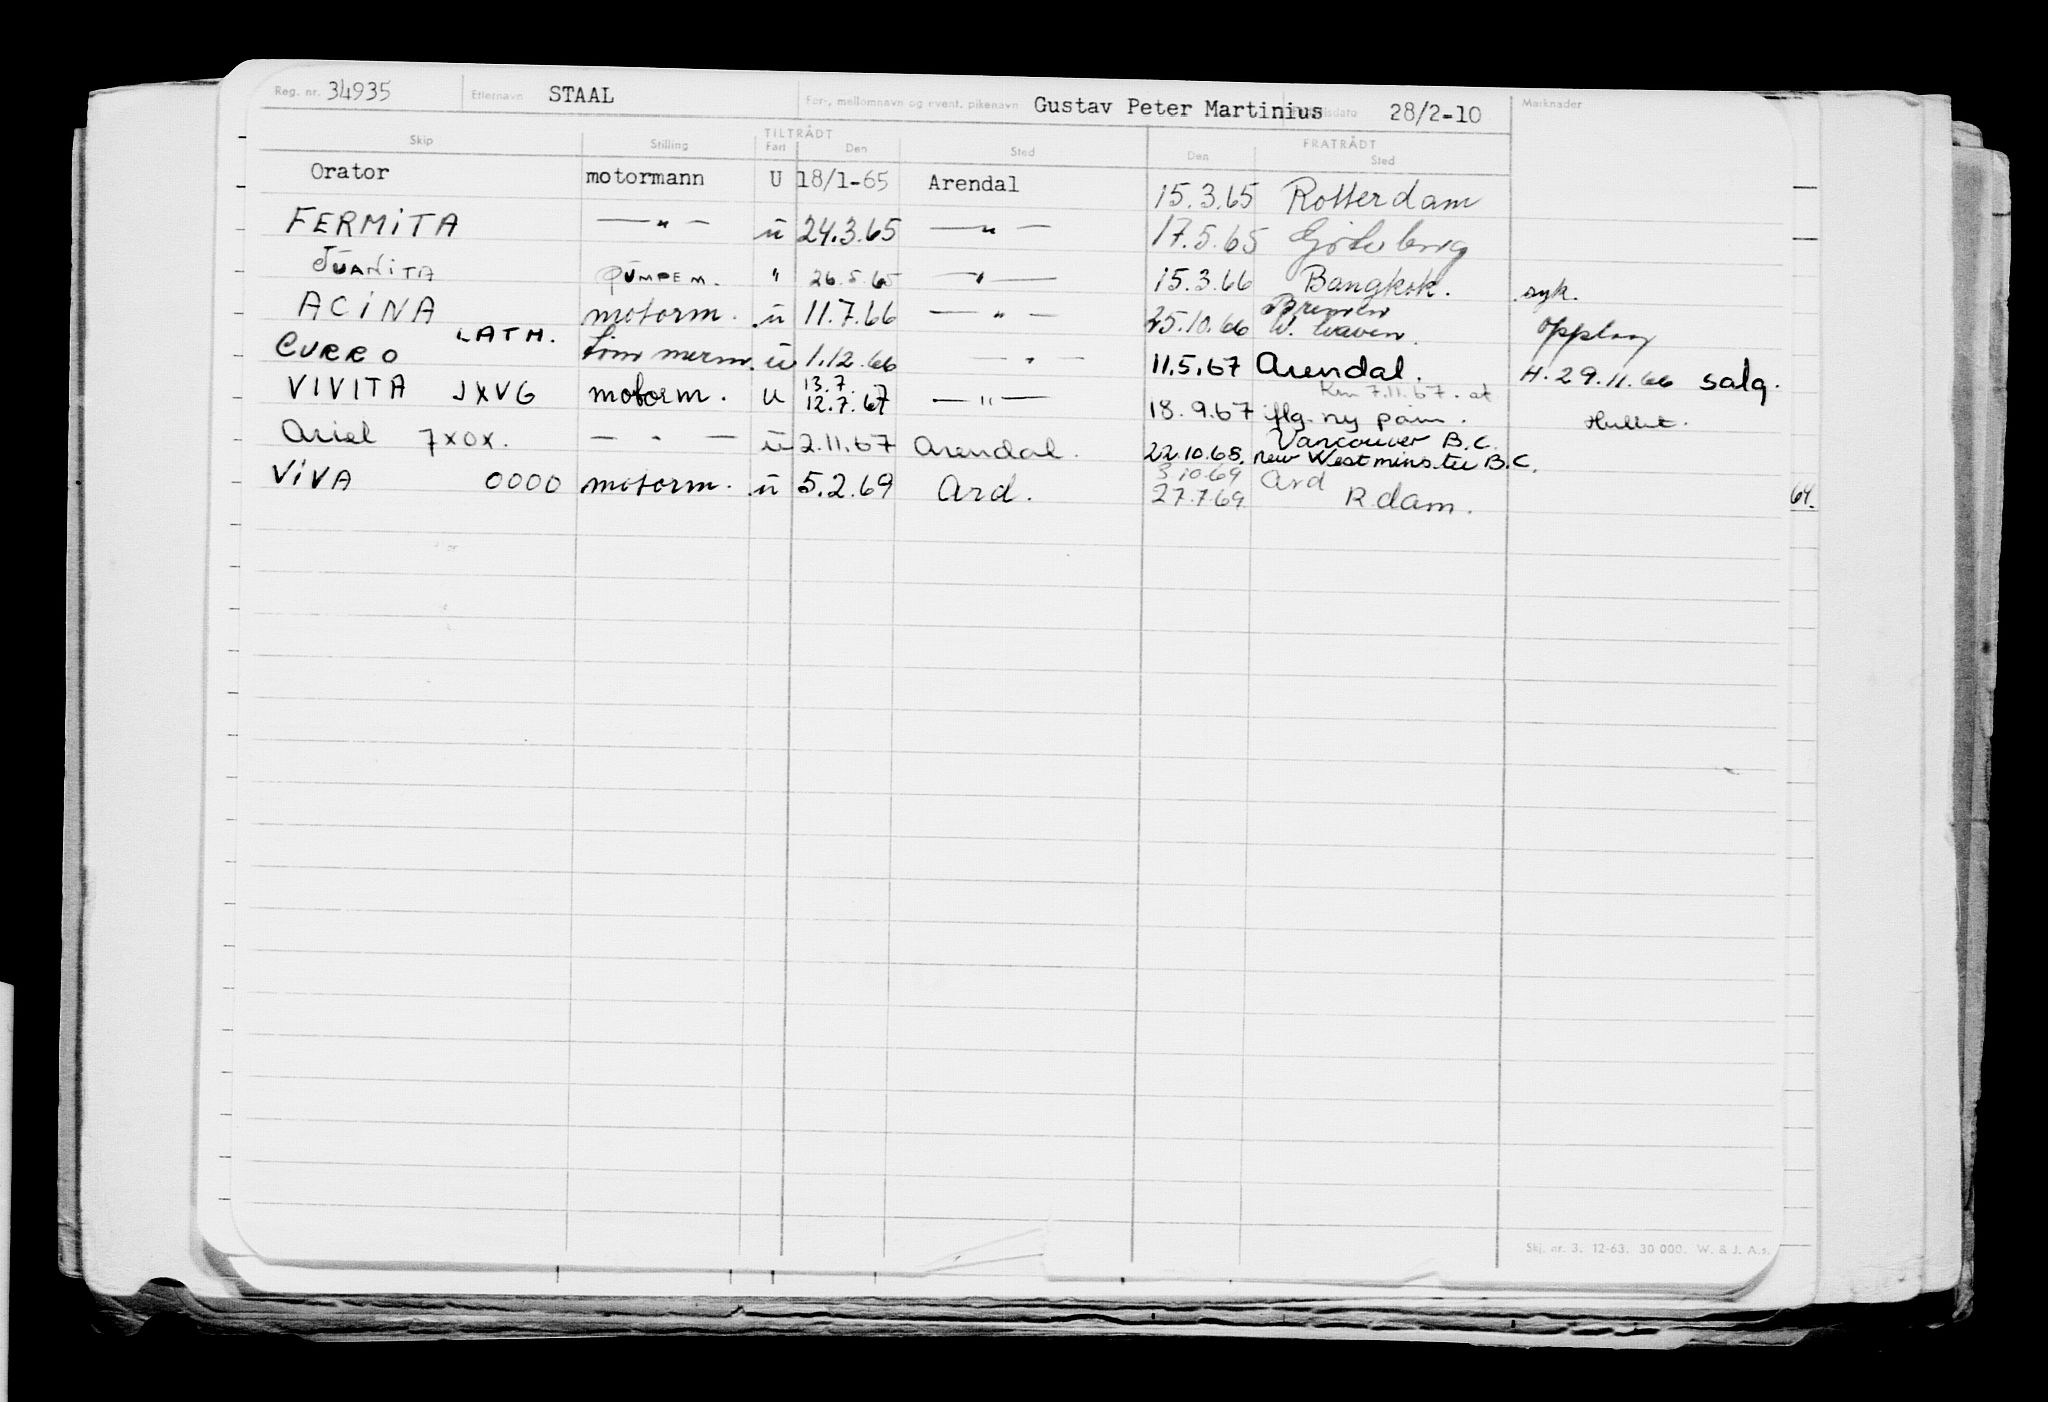 Reg. nr. 34935 Etternavn STAAL For-, mellomnavn og event. pikenavn Gustav Peter Martinius 28/2-10 Merknader
Skip Stilling TILTRÅDT Fart Den Sted FRATRÅDT Den Sted
Orator motormann U 18/1-65 Arendal 15.3.65 Rotterdam
FERMITA — " — ū 24.3.65 — " — 17.5.65 Göteborg
JUANITA PUMPEM. " 26.5.65 — " — 15.3.66 Bangkok. syk.
ACINA motorm. ū 11.7.66 — " — 25.10.66 Bremen W. haven. Opplag
CURRO LATH. tømmerm. ū 1.12.66 — " — 11.5.67 Arendal. H. 29.11.66 salg.
VIVITA JXVG motorm. U 13.7. 12.7.67 — " — 18.9.67 iflg. ny påm. Km 7.11.67. at Hullet.
Ariel 7XOX. — " — ū 2.11.67 Arendal. 22.10.68. Vancouver B.C. new Westminster B.C.
VIVA OOOO motorm. ū 5.2.69 Ard. 3.10.69 Ard
27.7.69 R.dam.
64.
Skj. nr. 3. 12-63. 30 000. W. & J. A.s.